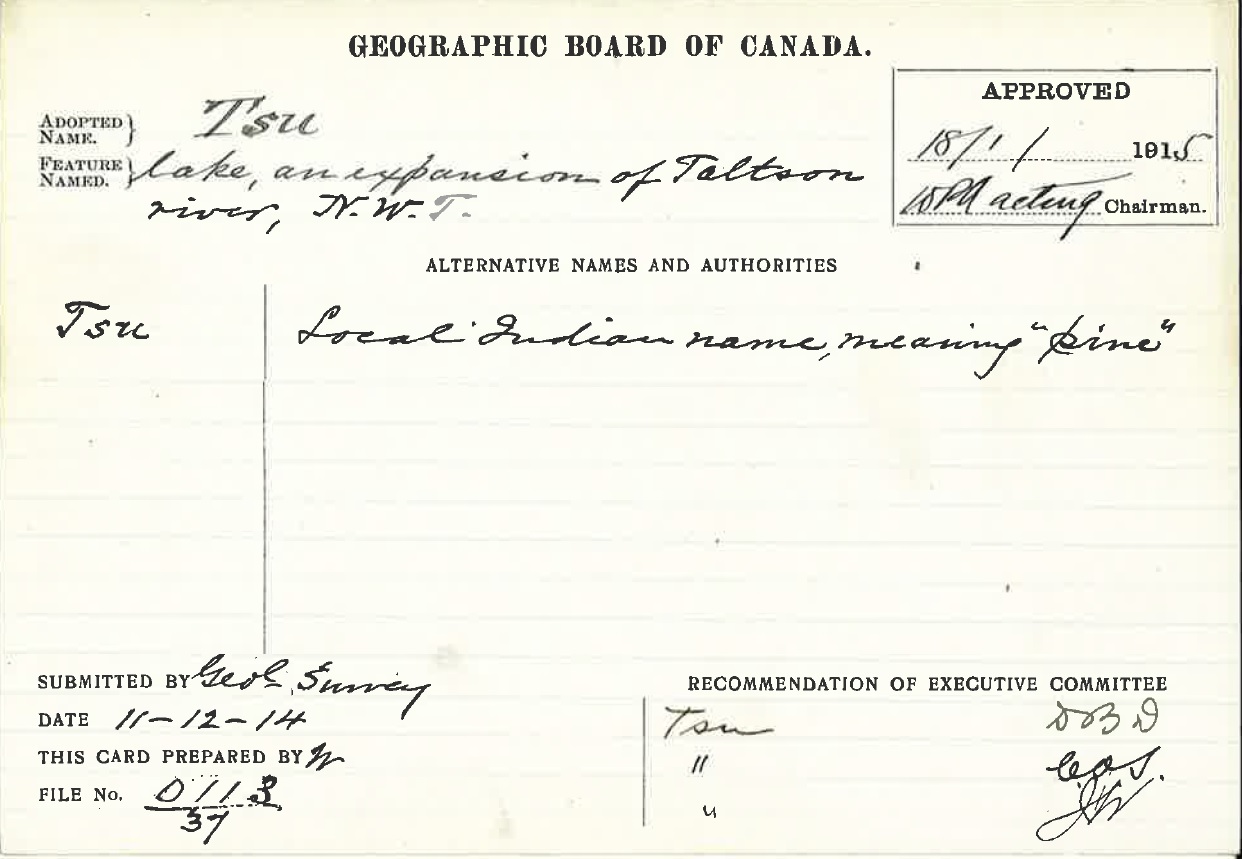 GEOGRAPHIC BOARD OF CANADA.
APPROVED
18/1/ 1915
acting Chairman.
ADOPTED NAME. } Tsu
FEATURE NAMED. } lake, an expansion of Taltson
river, N.W.T.
ALTERNATIVE NAMES AND AUTHORITIES
Tsu Local Indian name, meaning "pine"
SUBMITTED BY Geol. Survey
DATE 11-12-14
THIS CARD PREPARED BY
FILE No. 0113
37
RECOMMENDATION OF EXECUTIVE COMMITTEE
Tsu DBD
"
"